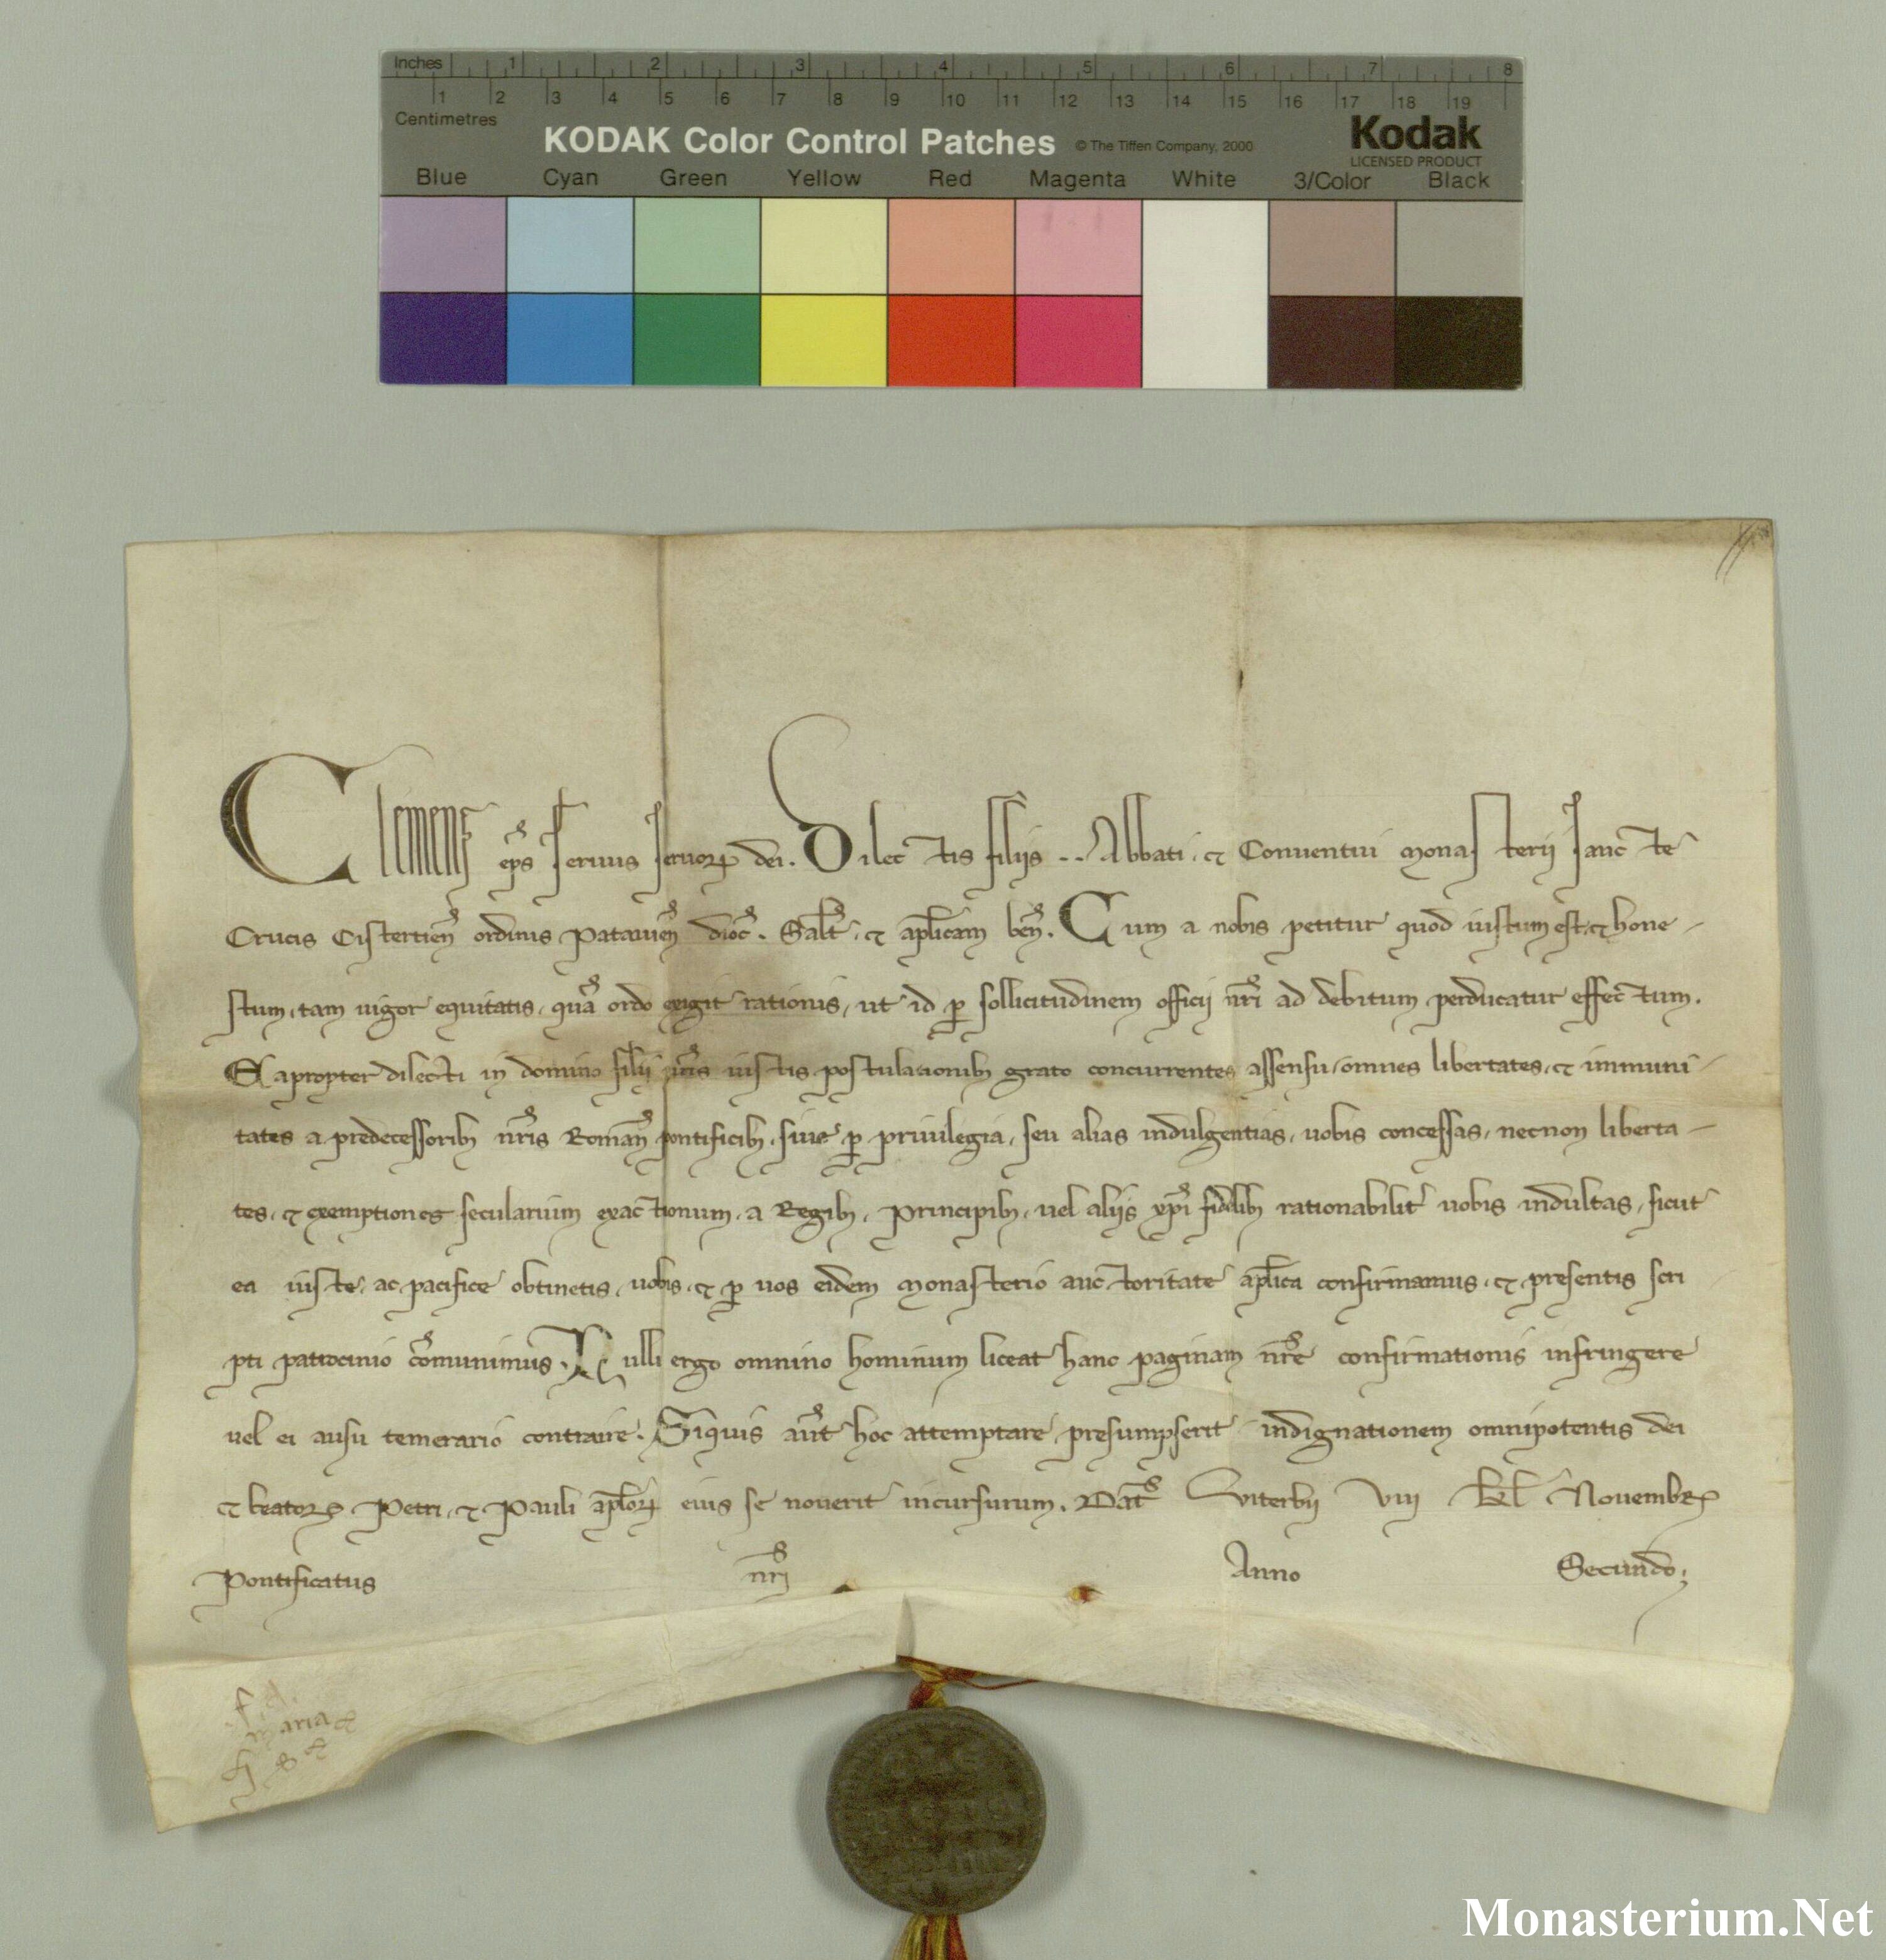 Inches 1 2 3 4 5 6 7 8
1 2 3 4 5 6 7 8 9 10 11 12 13 14 15 16 17 18 19
Centimetres
KODAK Color Control Patches © The Tiffen Company, 2000 Kodak
LICENSED PRODUCT
Blue Cyan Green Yellow Red Magenta White 3/Color Black
Clemens ep̄s seruus seruoꝝ dei. Dilectis filijs .. Abbati, ⁊ Conuentui Monasterij sancte
Crucis Cistertieñ ordinis Patauieñ dioc̄. Salt̄, ⁊ ap̄licam beñ. Cum a nobis petitur quod iustum est, ⁊ hone-
stum, tam uigor equitatis, quā ordo exigit rationis, ut id ꝑ sollicitudinem officij nr̄i ad debitum perducatur effectum.
Eapropter dilecti in domino filij ur̄is iustis postulationibꝫ grato concurrentes assensu, omnes libertates, ⁊ immuni-
tates a predecessoribꝫ nr̄is Romañ pontificibꝫ, siue ꝑ priuilegia, seu alias indulgentias, uobis concessas, necnon liberta-
tes, ⁊ exemptiones secularium exactionum, a Regibꝫ, Principibꝫ, uel alijs xp̄i fidelibꝫ rationabilit̄ uobis indultas, sicut
ea iuste, ac pacifice obtinetis, uobis, ⁊ ꝑ uos eidem Monasterio auctoritate ap̄lica confirmamus, ⁊ presentis scri
pti patrocinio cōmunimus. Nulli ergo omnino hominum liceat hanc paginam nr̄e confirmationis infringere
uel ei ausu temerario contraire. Siquis aut̄ hoc attemptare presumpserit indignationem omnipotentis dei
⁊ beatoꝝ Petri, ⁊ Pauli ap̄loꝝ eius se nouerit incursurum. Dat̄ Viterbij VIII kl̄ Nouembꝝ
Pontificatus nr̄i Anno Secundo;
Monasterium.Net